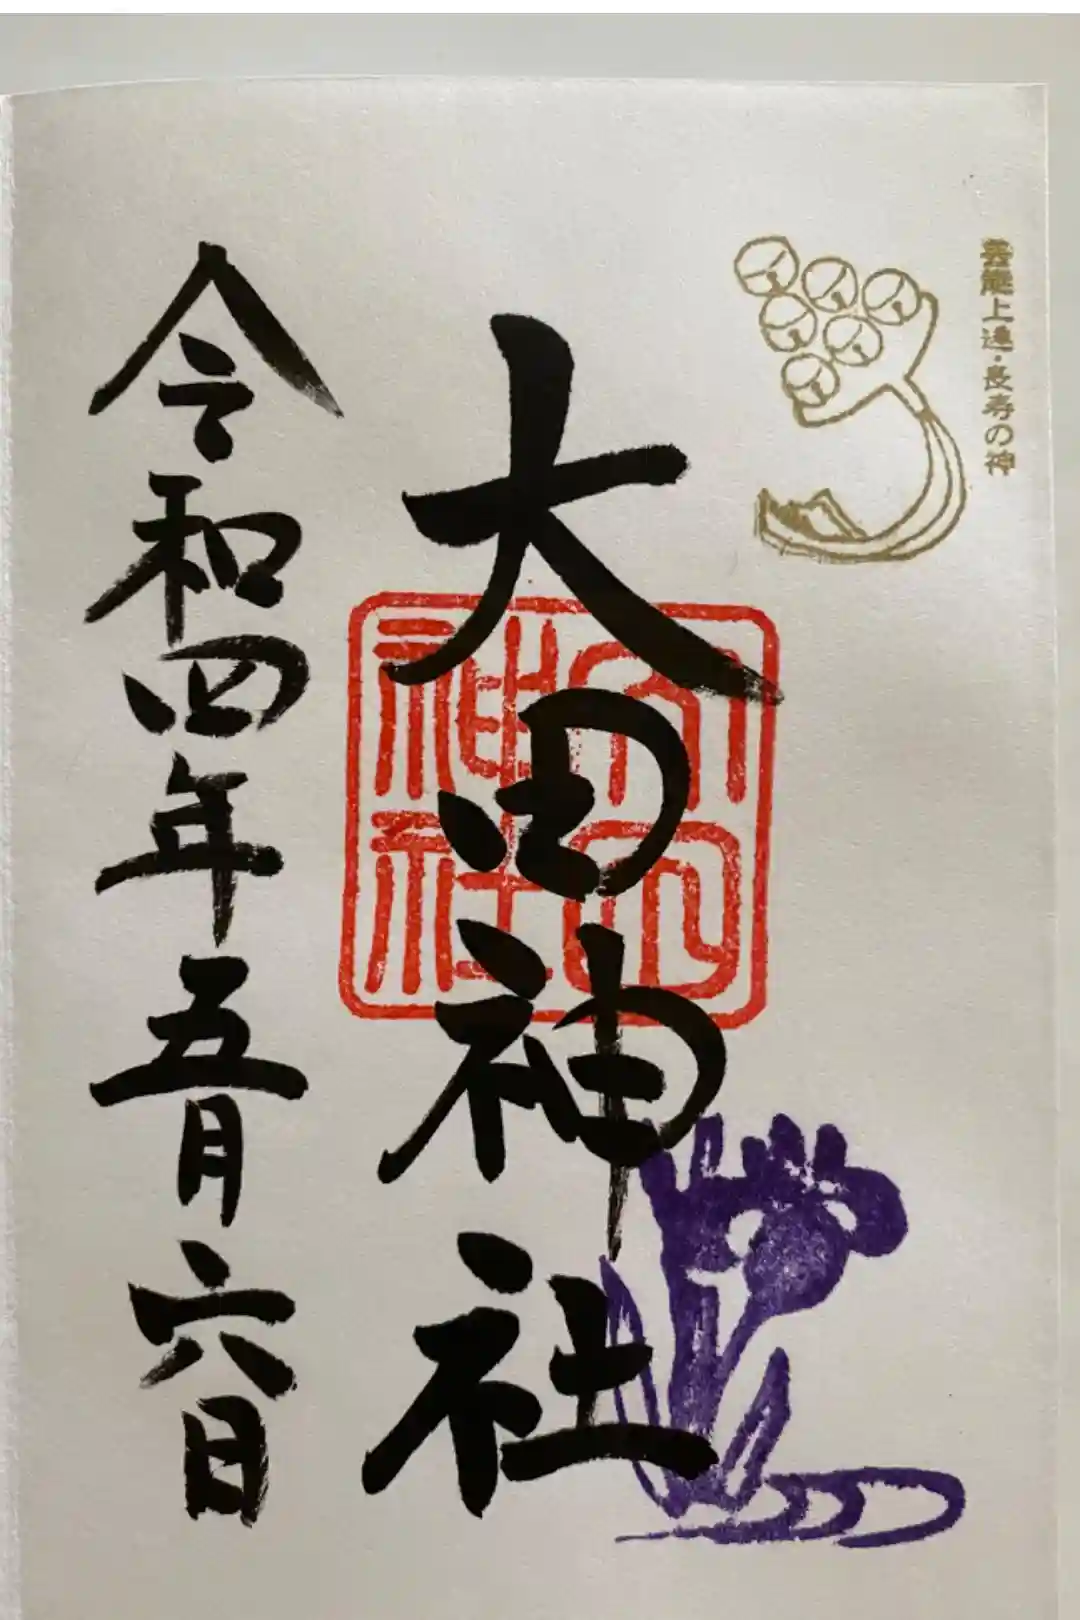 芸能上達・長寿の神
大田神社
大田神社
令和四年五月六日